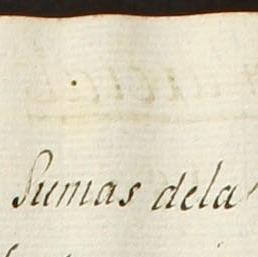 Sumas dela